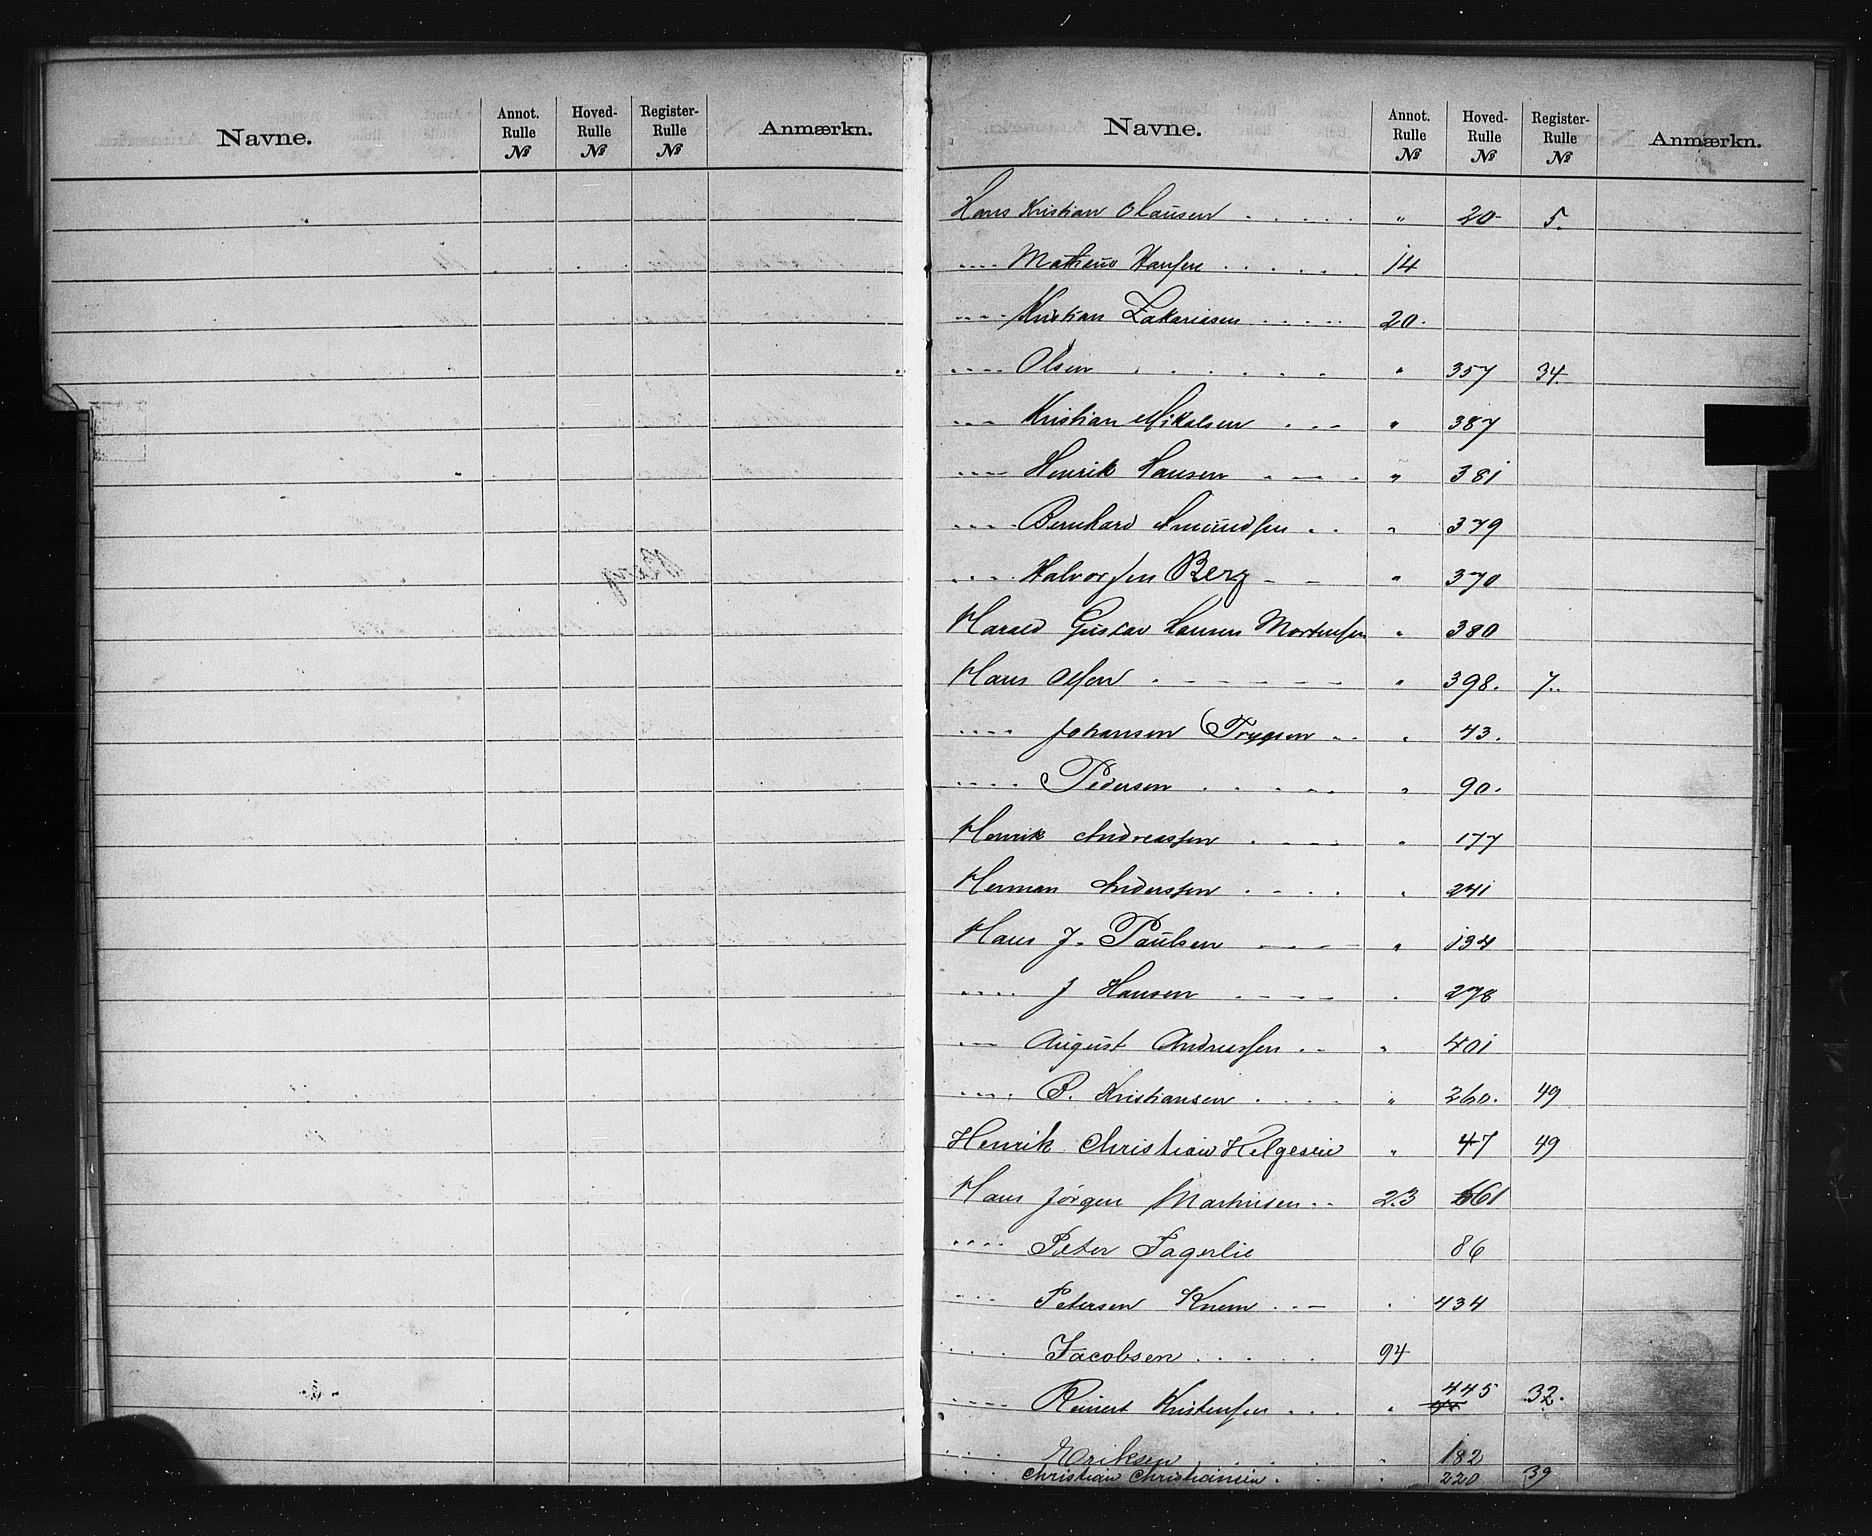 Navne. Annot. Rulle № Hoved- Rulle № Register- Rulle № Anmærkn.
Navne. Annot. Rulle № Hoved- Rulle № Register- Rulle № Anmærkn.
Hans Kristian Olausen . . . . . " 20 5.
---- Matheus Hansen . . . . . 14
---- Kristian Zakariasen . . . . . 20.
---- Olsen . . . . . . " 357 34
--- Kristian Mikalsen . - - " 387
---- Henrik Hansen . - - . " 381
---- Bernhard Amundsen . . " 379
---- Halvorsen Berg - - " 370
Harald Gustav Hansen Mortensen " 380
Hans Olsen . - - - - - " 398. 7.
---- Johansen Trygsen . . " 43.
---- Pedersen . . . . . " 90.
Henrik Andreassen . - - - " 177
Herman Anderssen . - . . " 241
Hans J. Paulsen - - - - " 134
---- J Hansen . - - - " 278
--- August Andreassen . . " 401
---- B. Kristiansen . . . . " 260. 49
Henrik Christian Helgesen " 47 49
Hans Jørgen Martinsen . . 23 661
---- Peter Fagerlie 86
---- Petersen Knem . . - " 434
---- Jacobsen . . . . . 94
---- Reinert Kristensen . . . " 445 32.
---- Eriksen . . . . " 182
Christian Christiansen . . . " 220 39